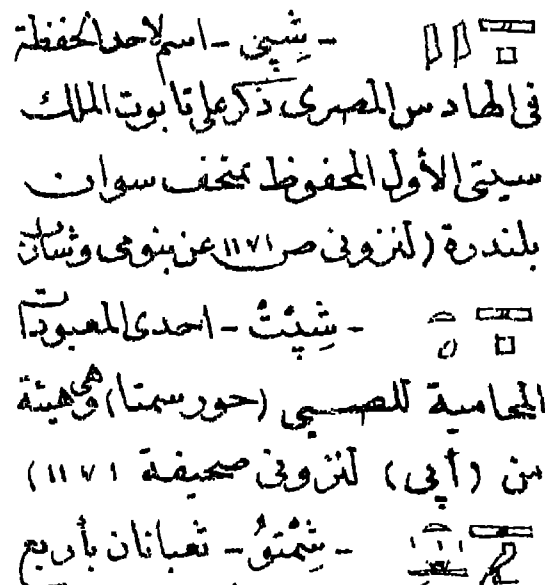 - شِپِى - اسم لاحد الحفظة
فى الهادس المصرى ذكر على تابوت الملك
سيتى الأول المحفوظ بمتحف سوان
بلندرة (لنزونى ص ١١٧١ عن بنومى وشارل
- شِپِتْ - احدى المعبودات
المحامية للصبى (حورسمتا) وهى هيئة
من (أپى) لنزونى صحيفة ١١٧١)
- شِمْتوُ - ثعبانان بأربع